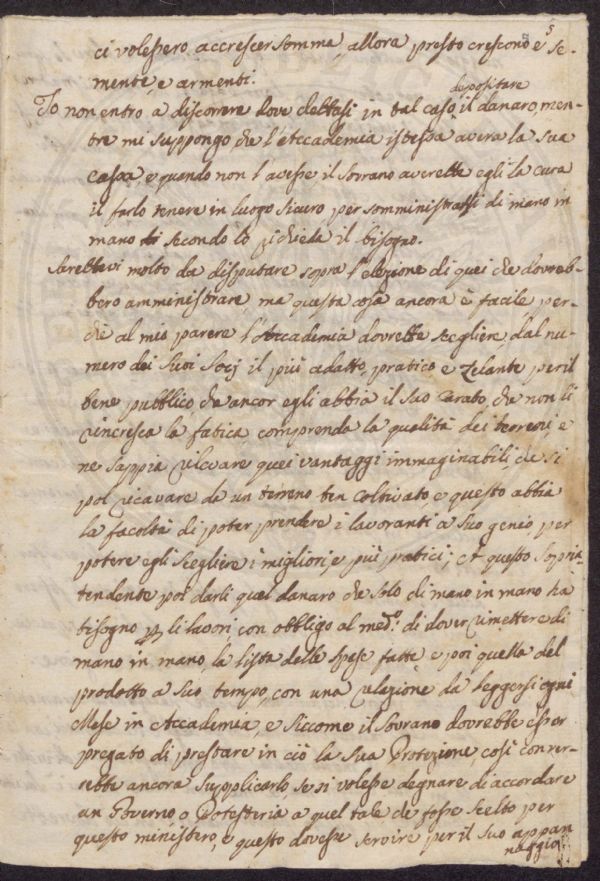 5
ci volessero accrescer somma, allora presto crescono e se-
mente, e armenti.
Io non entro a discorrere dove debbasi in tal caso depositare il danaro, men-
tre mi suppongo che l'Accademia istessa averà la sua
cassa e quando non l'avesse, il Sovrano averebbe egli la cura
il farlo tenere in luogo sicuro per somministrarsi di mano in
mano secondo lo richieda il bisogno.
Sarebbevi molto da disputare sopra l'elezione di quei che dovreb-
bero amministrare, ma questa cosa ancora è facile, per-
chè al mio parere l'Accademia dovrebbe scegliere dal nu-
mero dei suoi Socj il più adatto, pratico e zelante per il
bene pubblico, che ancor egli abbia il suo che non li
rincresca la fatica comprenda la qualità dei terreni, e
ne sappia rilevare quei vantaggi immaginabili che si
pol ricavare da un terreno ben coltivato, e questo abbia
la facoltà di poter prendere i lavoranti a suo genio, per
potere egli scegliere i migliori, e più pratici; A questo Soprin-
tendente poi darli quel danaro che solo di mano in mano ha
bisogno p li lavori con obbligo al med.º di dover rimettere di
mano in mano la lista delle spese fatte e poi quella del
prodotto a suo tempo, con una relazione da leggersi ogni
Mese in Accademia, e siccome il Sovrano dovrebbe esser
pregato di prestare in ciò la sua Protezione, così conver-
rebbe ancora supplicarlo se si volesse degnare di accordare
un Governo o Potesteria a quel tale che fosse scelto per
questo ministero, e questo dovesse servire per il suo appan
naggio